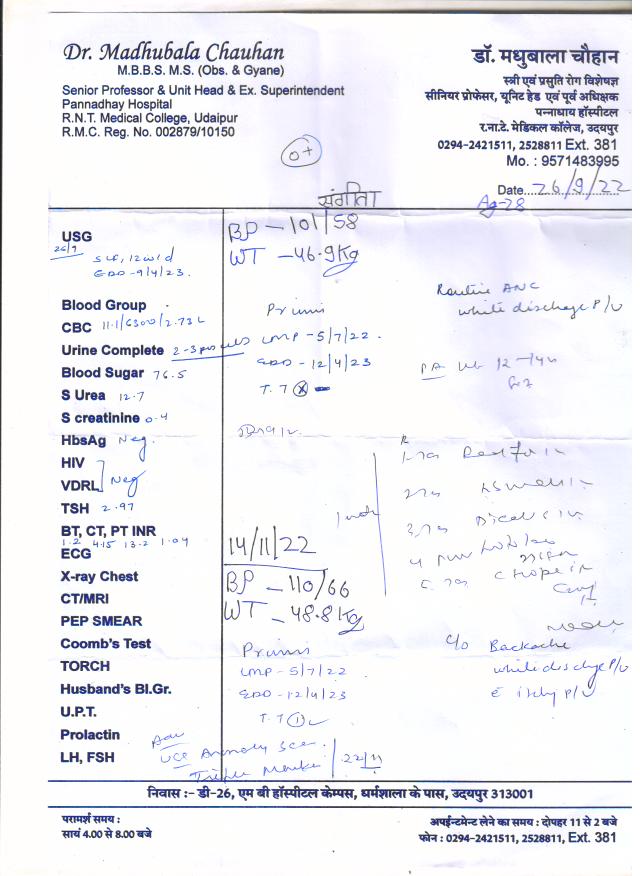 Dr. Madhubala Chauhan
M.B.B.S. M.S. (Obs. & Gyane)
Senior Professor & Unit Head & Ex. Superintendent
Pannadhay Hospital
R.N.T. Medical College, Udaipur
R.M.C. Reg. No. 002879/10150
डॉ. मधुबाला चौहान
स्त्री एवं प्रसुति रोग विशेषज्ञ
सीनियर प्रोफेसर, यूनिट हेड एवं पूर्व अधिक्षक
पन्नाधाय हॉस्पीटल
र.ना.टे. मेडिकल कॉलेज, उदयपुर
0294-2421511, 2528811 Ext. 381
Mo. : 9571483995
O+
Date 26/9/22
संगीता
Ag-28
USG
26/9
SLF, 12w1d
EDD - 9/4/23.
BP - 101/58
WT - 46.9Kg
Routine ANC
white discharge P/V
Blood Group
CBC 11.1/6300/2.73 L
Urine Complete 2-3 pus cells
Blood Sugar 76.5
S Urea 12.7
S creatinine 0.4
HbsAg Neg.
HIV
VDRL Neg
TSH 2.97
BT, CT, PT INR
1.2 4.15 13.2 1.04
ECG
X-ray Chest
CT/MRI
PEP SMEAR
Coomb's Test
TORCH
Husband's Bl.Gr.
U.P.T.
Prolactin
LH, FSH
Primi
LMP - 5/7/22.
EDD - 12/4/23
T.T
PA 12-14w
14/11/22
BP - 110/66
WT - 48.8Kg
Primi
LMP - 5/7/22
EDD - 12/4/23
T.T 1
c/o Backache
white discharge P/V
c itchy P/V
Adv
22/11
निवास :- डी-26, एम बी हॉस्पीटल केम्पस, धर्मशाला के पास, उदयपुर 313001
परामर्श समय :
सायं 4.00 से 8.00 बजे
अपईन्टमेन्ट लेने का समय : दोपहर 11 से 2 बजे
फोन : 0294-2421511, 2528811, Ext. 381